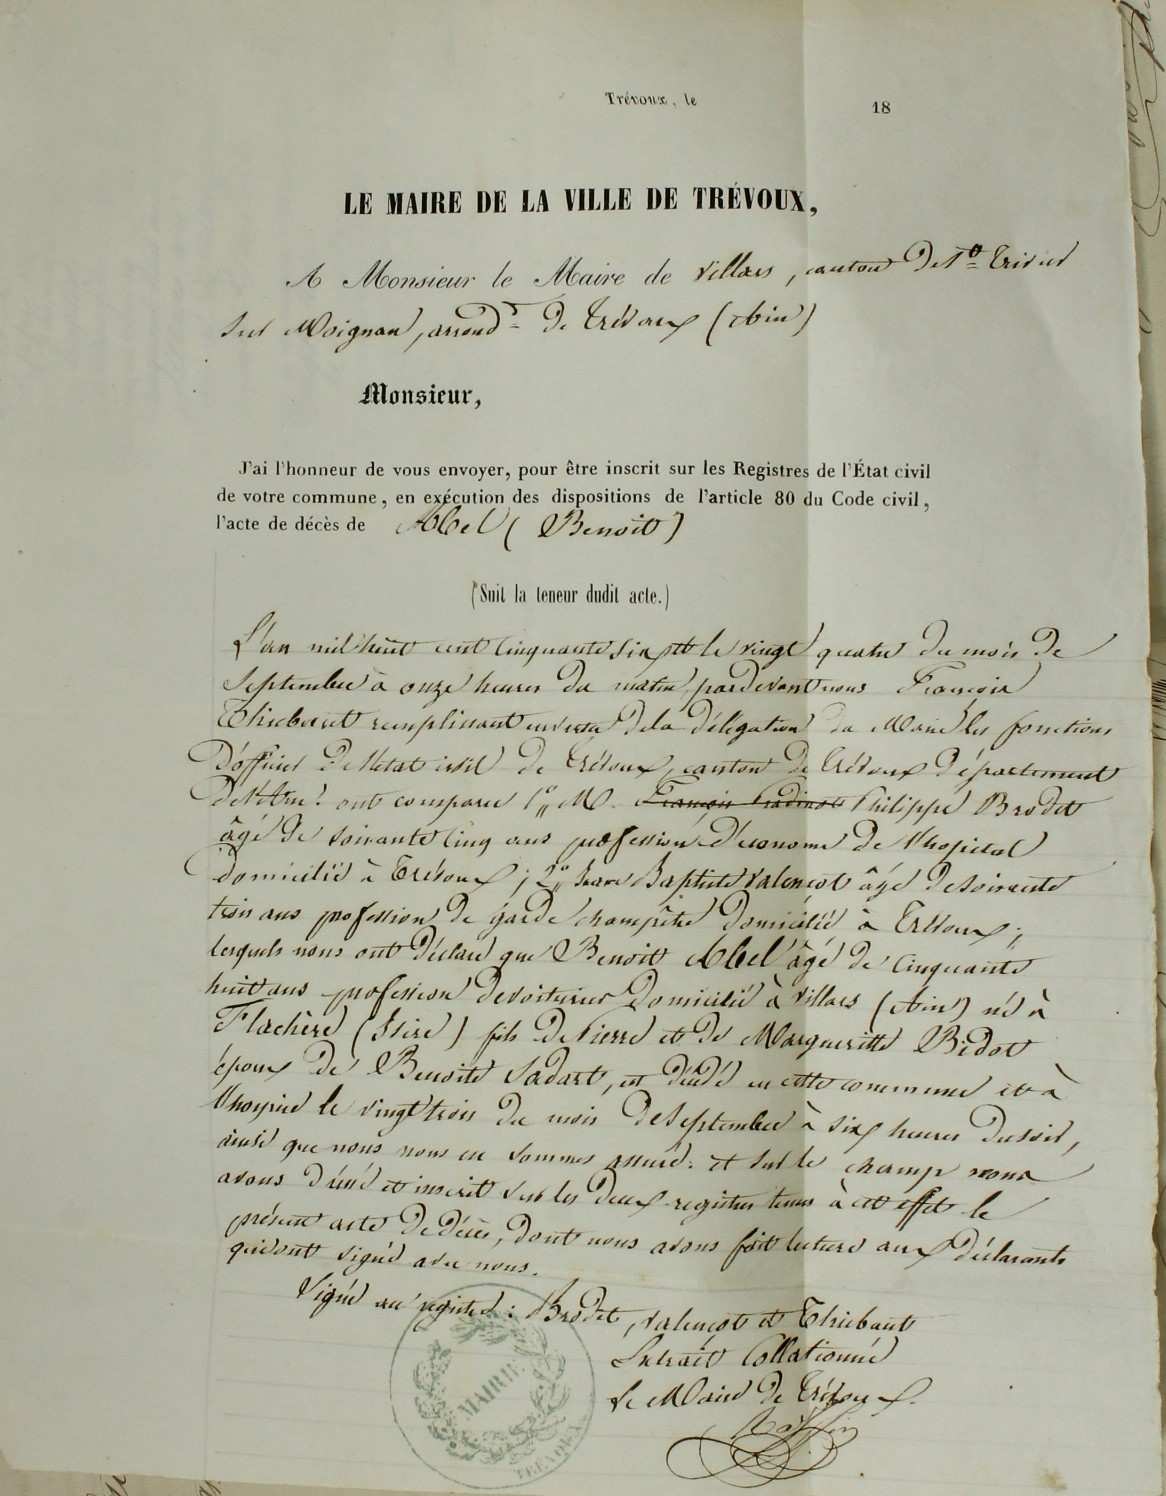 Trévoux, le 18
LE MAIRE DE LA VILLE DE TRÉVOUX,
A Monsieur le Maire de Villars, canton de St Trivier
sur Moignan, arrondt de Trévoux (Ain)
Monsieur,
J'ai l'honneur de vous envoyer, pour être inscrit sur les Registres de l'État civil
de votre commune, en exécution des dispositions de l'article 80 du Code civil,
l'acte de décès de Abel (Benoit)
(Suit la teneur dudit acte.)
L'an mil huit cent cinquante sept le vingt quatre du mois de
Septembre à onze heures du matin, pardevant nous François
Thiebaut remplissant en vertu de la délégation du Maire les fonctions
d'officier de l'état civil de Trévoux, canton de Trévoux département
de l'Ain. ont comparu 1° M. François Philippe Brodet
âgé de soixante cinq ans profession d'économe de l'hopital
domicilié à Trévoux; 2° Jean Baptiste Valençot âgé de soixante
trois ans profession de garde champêtre domicilié à Trévoux;
lesquels nous ont déclaré que Benoit Abel âgé de cinquante
huit ans profession de voiturier domicilié à Villars (Ain) né à
Flachère (Isère) fils de Pierre et de Margueritte Bidot
époux de Benoite Sadart, est décédé en cette commune et à
l'hospice le vingt trois du mois de Septembre à six heures du soir,
ainsi que nous nous en sommes assuré. et sur le champ nous
avons dressé et inscrit sur les deux registres tenus à cet effet le
présent acte de décès, dont nous avons fait lecture aux déclarants
qui ont signé avec nous.
Signé au registre: Brodet, Valençot et Thiebaut
Extrait Collationné
Le Maire de Trévoux.
MAIRIE
TRÉVOUX